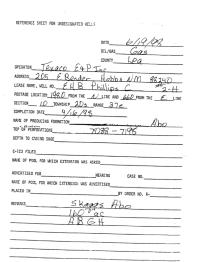 REFERENCE SHEET FOR UNDESIGNATED WELLS
DATE 6/19/98
OIL/GAS Gas
COUNTY Lea
OPERATOR Texaco E&P Inc
ADDRESS 205 E Bender Hobbs NM 88240
LEASE NAME, WELL NO. E H B Phillips C 2-H
FOOTAGE LOCATION 1980 FROM THE N LINE AND 660 FROM THE E LINE
SECTION 10 TOWNSHIP 20s RANGE 37e
COMPLETION DATE 4/16/98
NAME OF PRODUCING FORMATION Abo
TOP OF PERFORATIONS 7038 - 7195
DEPTH TO CASING SHOE
C-123 FILED
NAME OF POOL FOR WHICH EXTENSION WAS ASKED
ADVERTISED FOR HEARING CASE NO.
NAME OF POOL FOR WHICH EXTENSION WAS ADVERTISED
PLACED IN BY ORDER NO. R-
Skaggs Abo
160 ac
A B G H